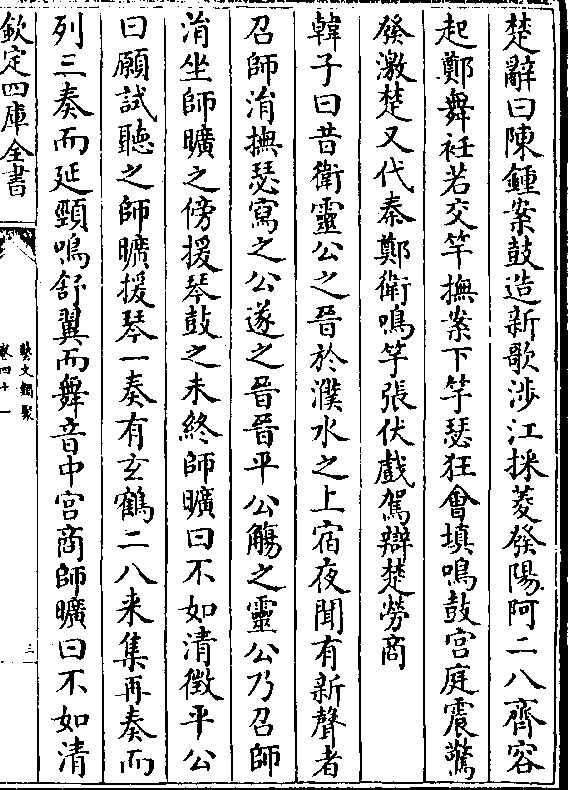 楚辭曰陳鍾案鼓造新歌涉江採菱發陽阿二八齊容
起鄭舞衽若交竿撫案下竽瑟狂會填鳴鼓宮庭震驚
發激楚又代秦鄭衛鳴竽張伏戲駕辯楚勞商
韓子曰昔衛靈公之晉於濮水之上宿夜聞有新聲者
召師涓撫瑟寫之公遂之晉晉平公觴之靈公乃召師
涓坐師曠之傍援琴鼓之未終師曠曰不如清徵平公
曰願試聽之師曠援琴一奏有玄鶴二八来集再奏而
列三奏而延頸鳴舒翼而舞音中宮商師曠曰不如清
欽定四庫全書
藝文類聚
卷四十一
三